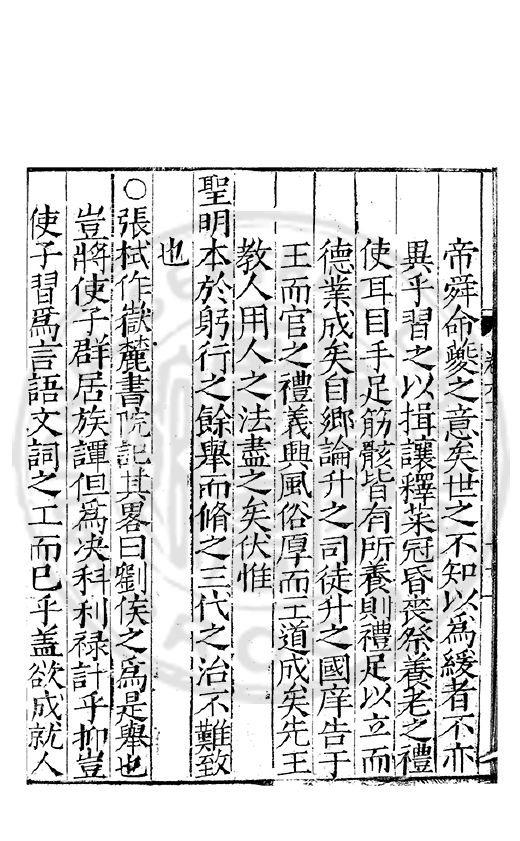 帝舜命夔之意矣世之不知以爲緩者不亦
異乎習之以揖讓釋菜冠昏喪祭養老之禮
使耳目手足筋骸皆有所養則禮足以立而
德業成矣自鄉論升之司徒升之國庠告于
王而官之禮義興風俗厚而王道成矣先王
教人用人之法盡之矣伏惟
聖明本於躬行之餘舉而脩之三代之治不難致
也
○張栻作嶽麓書院記其畧曰劉侯之爲是舉也
豈將使子群居族譚但爲决科利禄計乎抑豈
使子習爲言語文詞之工而已乎盖欲成就人